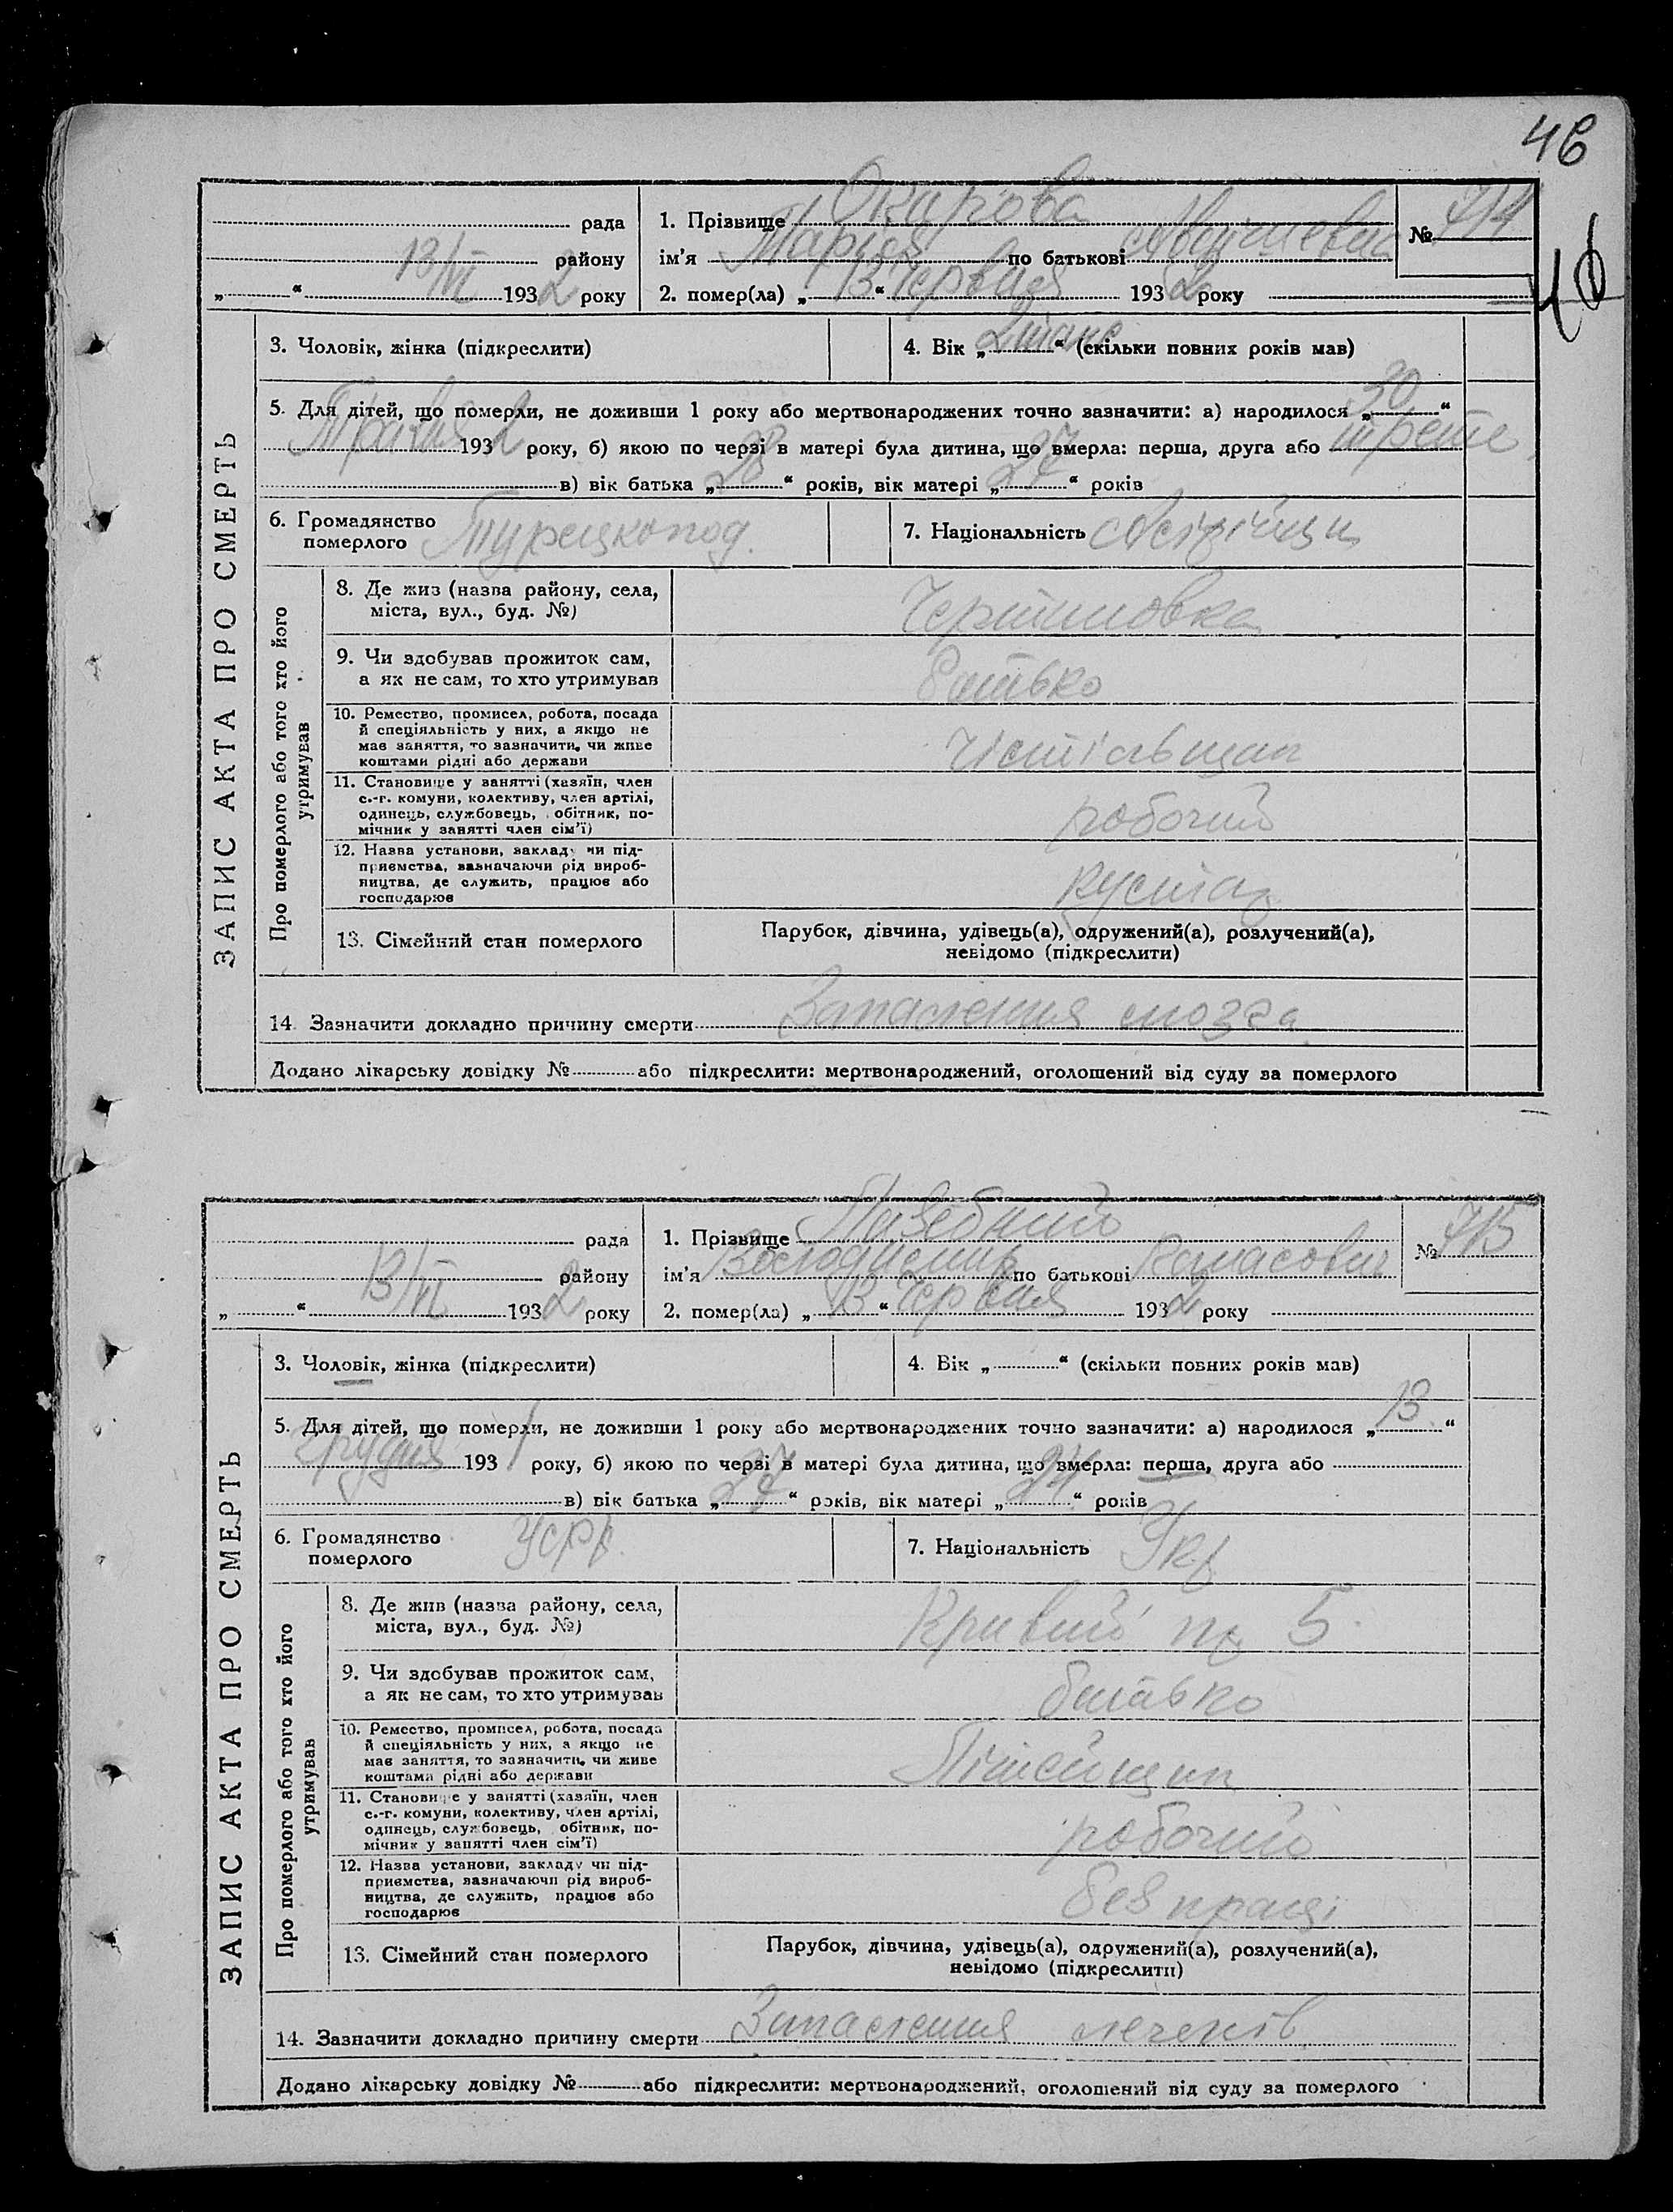 46
рада
району
13/VI
„ “ 1932 року
1. Прізвище
ім’я Марія по батькові
2. помер(ла) „13“ Червня 1932 року
№ 714
ЗАПИС АКТА ПРО СМЕРТЬ
3. Чоловік, жінка (підкреслити)
4. Вік „ “ (скільки повних років мав)
5. Для дітей, що померли, не доживши 1 року або мертвонароджених точно зазначити: а) народилося „30“
Травня 1932 року, б) якою по черзі в матері була дитина, що вмерла: перша, друга або третє
в) вік батька „28“ років, вік матері „27“ років
6. Громадянство
померлого Турецкопод.
7. Національність
Про померлого або того хто його
утримував
8. Де жив (назва району, села,
міста, вул., буд. №)
9. Чи здобував прожиток сам,
а як не сам, то хто утримував
батько
10. Ремество, промисел, робота, посада
й спеціяльність у них, а якщо не
має заняття, то зазначити, чи живе
коштами рідні або держави
11. Становище у занятті (хазяїн, член
с.-г. комуни, колективу, член артілі,
одинець, службовець, обітник, по-
мічник у занятті член сім’ї)
робочий
12. Назва установи, закладу чи під-
приємства, зазначаючи рід вироб-
ництва, де служить, працює або
господарює
кустар
13. Сімейний стан померлого
Парубок, дівчина, удівець(а), одружений(а), розлучений(а),
невідомо (підкреслити)
14. Зазначити докладно причину смерти Запалення мозга
Додано лікарську довідку № або підкреслити: мертвонароджений, оголошений від суду за померлого
рада
району
13/VI
„ “ 1932 року
1. Прізвище
ім’я Володимир по батькові
2. помер(ла) „13“ Червня 1932 року
№ 715
ЗАПИС АКТА ПРО СМЕРТЬ
3. Чоловік, жінка (підкреслити)
4. Вік „ “ (скільки повних років мав)
5. Для дітей, що померли, не доживши 1 року або мертвонароджених точно зазначити: а) народилося „13“
грудня 1931 року, б) якою по черзі в матері була дитина, що вмерла: перша, друга або
в) вік батька „27“ років, вік матері „24“ років
6. Громадянство
померлого УСРР
7. Національність Укр
Про померлого або того хто його
утримував
8. Де жив (назва району, села,
міста, вул., буд. №)
Кривий пр 5
9. Чи здобував прожиток сам,
а як не сам, то хто утримував
батько
10. Ремество, промисел, робота, посада
й спеціяльність у них, а якщо не
має заняття, то зазначити, чи живе
коштами рідні або держави
11. Становище у занятті (хазяїн, член
с.-г. комуни, колективу, член артілі,
одинець, службовець, обітник, по-
мічник у занятті член сім’ї)
робочий
12. Назва установи, закладу чи під-
приємства, зазначаючи рід вироб-
ництва, де служить, працює або
господарює
без праці
13. Сімейний стан померлого
Парубок, дівчина, удівець(а), одружений(а), розлучений(а),
невідомо (підкреслити)
14. Зазначити докладно причину смерти Запалення легенів
Додано лікарську довідку № або підкреслити: мертвонароджений, оголошений від суду за померлого